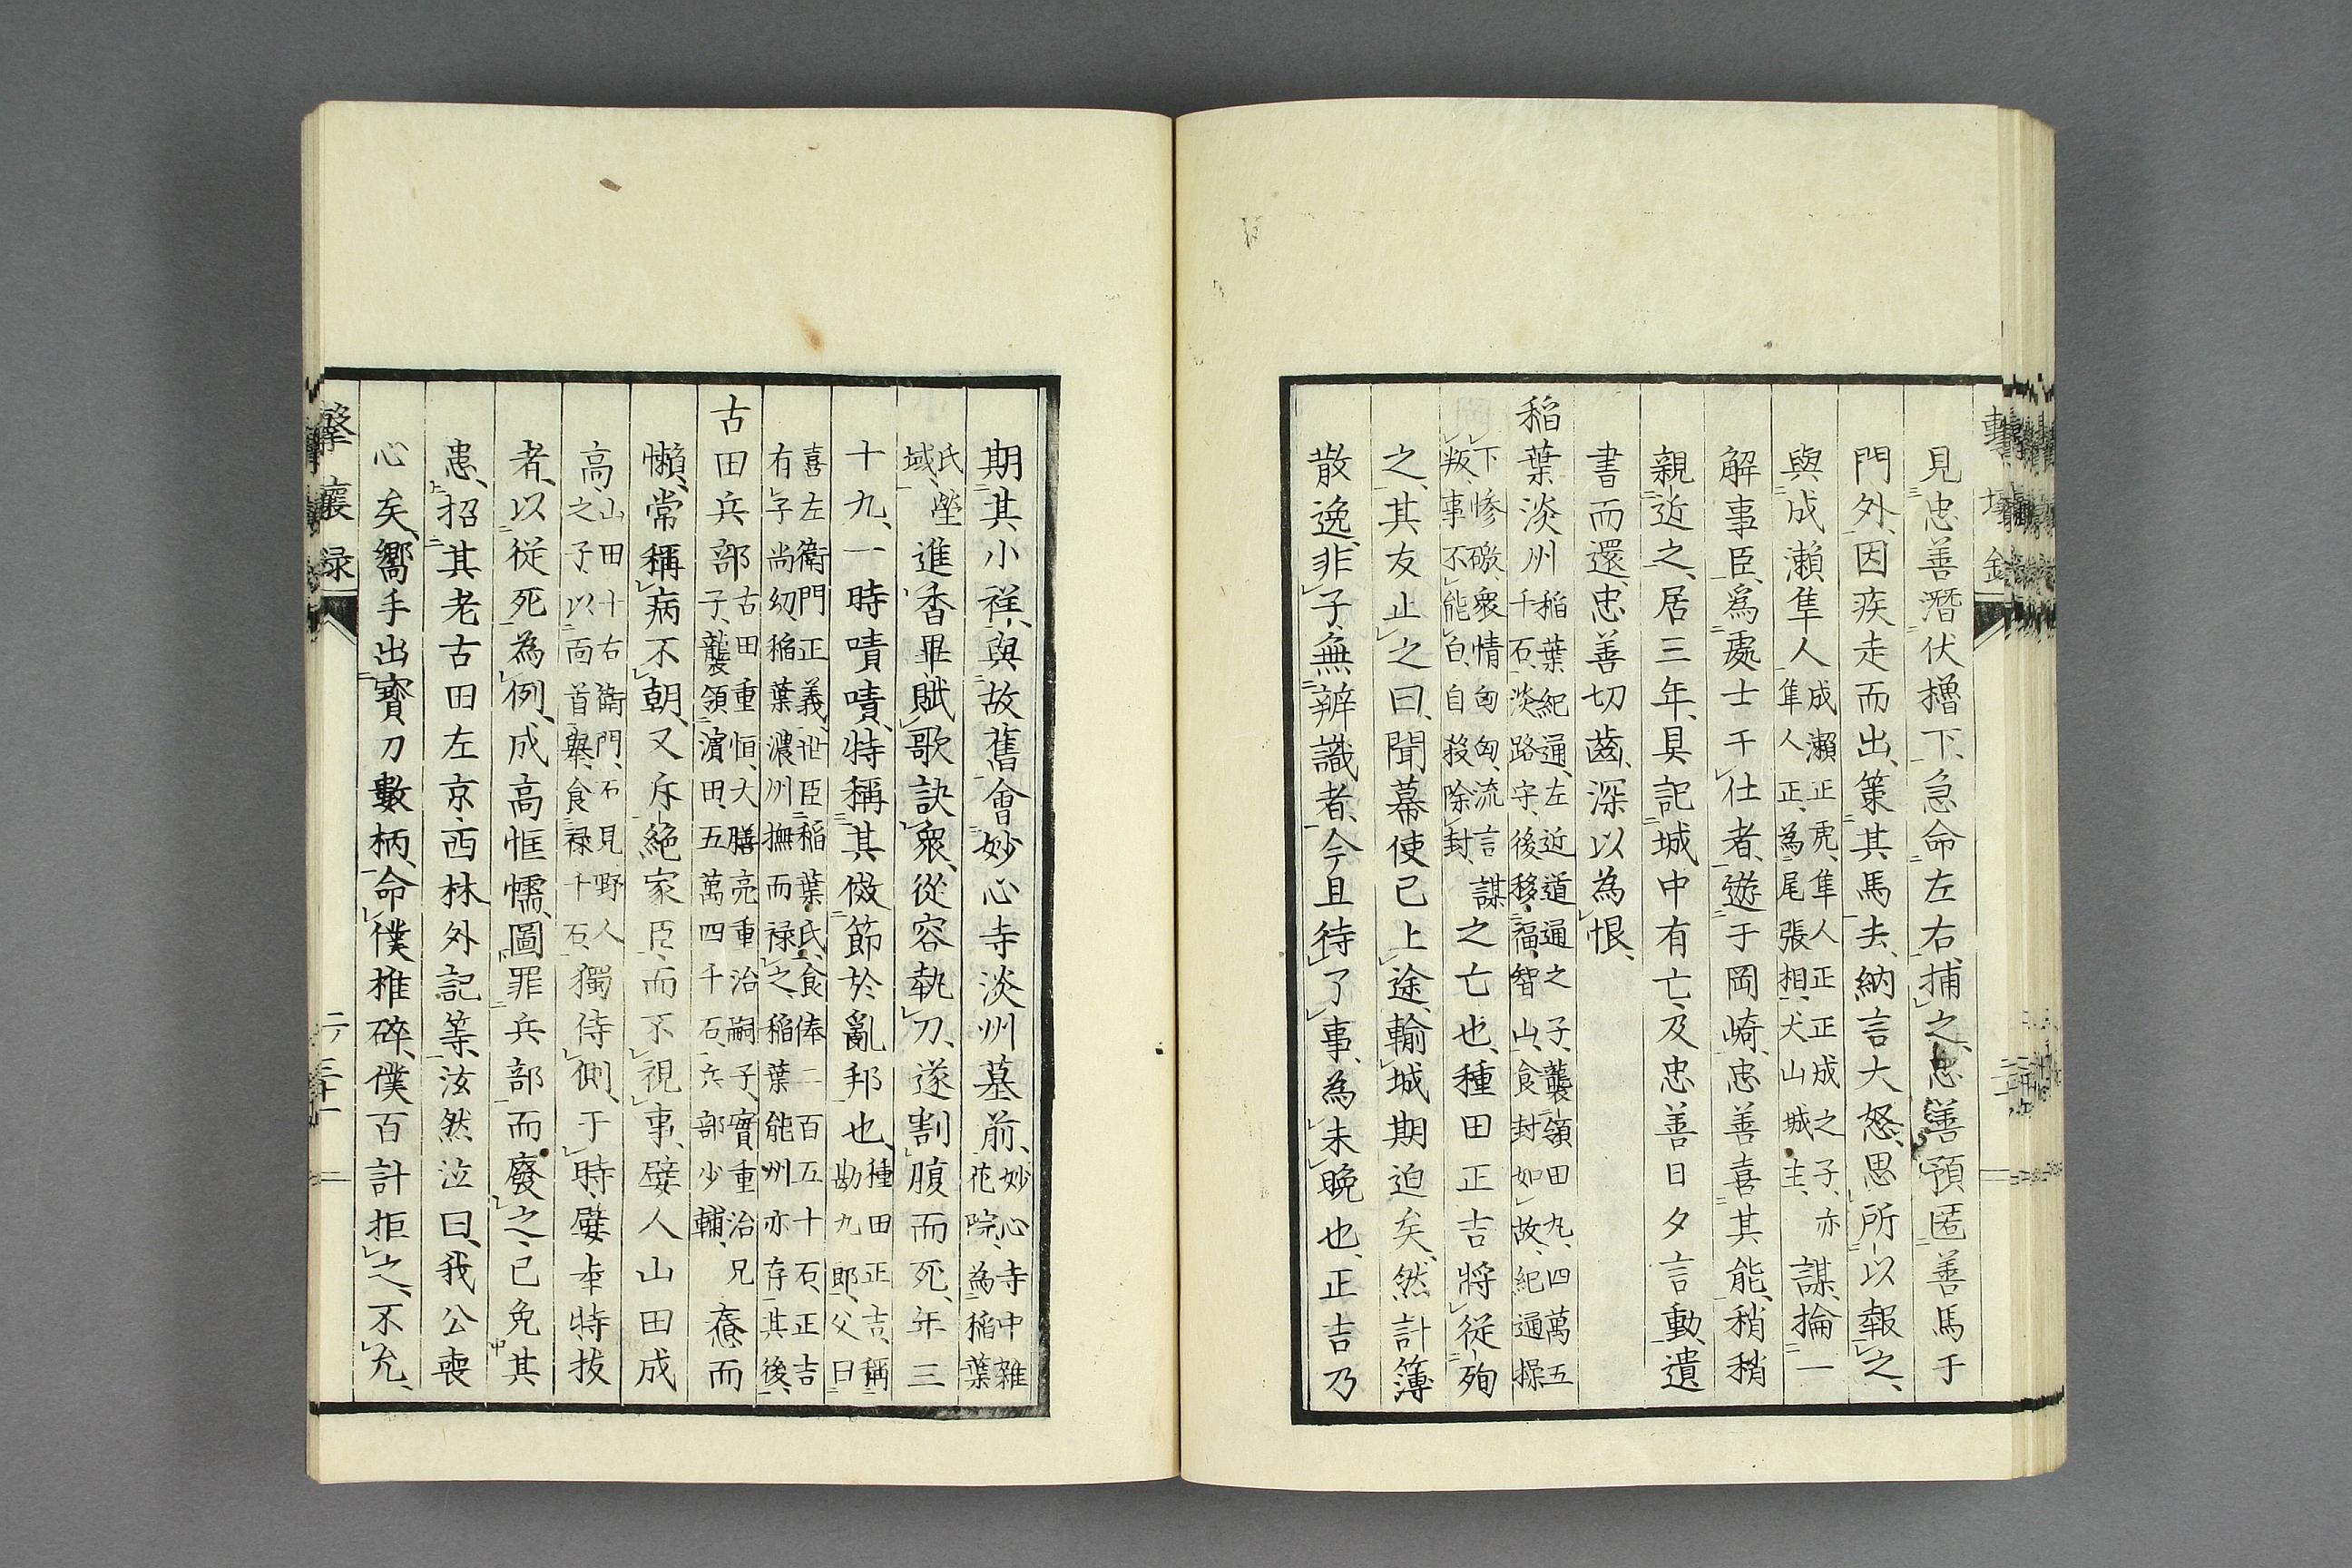 見忠善潛伏櫓下、急命左右捕之、忠善預匿善馬于
門外、因疾走而出、策其馬去、納言大怒、思所以報之、
與成瀨隼人成瀨正虎、隼人正正成之子、亦
隼人正、為尾張相、犬山城主、謀掄一
解事臣、為處士干仕者、遊于岡崎、忠善喜其能、稍稍
親近之、居三年、具記城中有亡、及忠善日夕言動、遺
書而還、忠善切齒、深以為恨、
稲葉淡州稲葉紀通、左近道通之子、襲領田丸、四萬五
千石、淡路守、後移福智山、食封如故、紀通操
下慘礉、衆情匈匈、流言謀
叛、事不能白、自殺除封、之亡也、種田正吉將従殉
之、其友止之曰、聞幕使已上途、輸城期迫矣、然計簿
散逸、非子無辨識者、今且待了事、為未晚也、正吉乃
期其小祥、與故舊會妙心寺淡州墓前、妙心寺中雜
花院、為稲葉
氏塋
域、進香畢、賦歌訣衆、從容執刀、遂割腹而死、年三
十九、一時嘖嘖、特稱其倣節於亂邦也、種田正吉、稱
勘九郎、父曰
喜左衛門正義、世臣稲葉氏、食俸二百五十石、正吉
有子尚幼、稲葉濃州撫而禄之、稲葉能州亦存其後、
古田兵部古田重恒、大膳亮重治嗣子、實重治兄
子、襲領濱田、五萬四千石、兵部少輔、㾭而
懶、常稱病不朝、又斥絶家臣、而不視事、嬖人山田成
高、山田十右衛門、石見野人
之子、以面首擧、食禄千石、獨侍側、于時、嬖幸特拔
者、以従死為例、成高恇懦、圖罪兵部而廢之、已免其
患、招其老古田左京、西林外記等、泫然泣曰、我公喪
心矣、嚮手出寳刀數柄、命僕椎碎、僕百計拒之、不允、
撃壤録
二ノ三十一